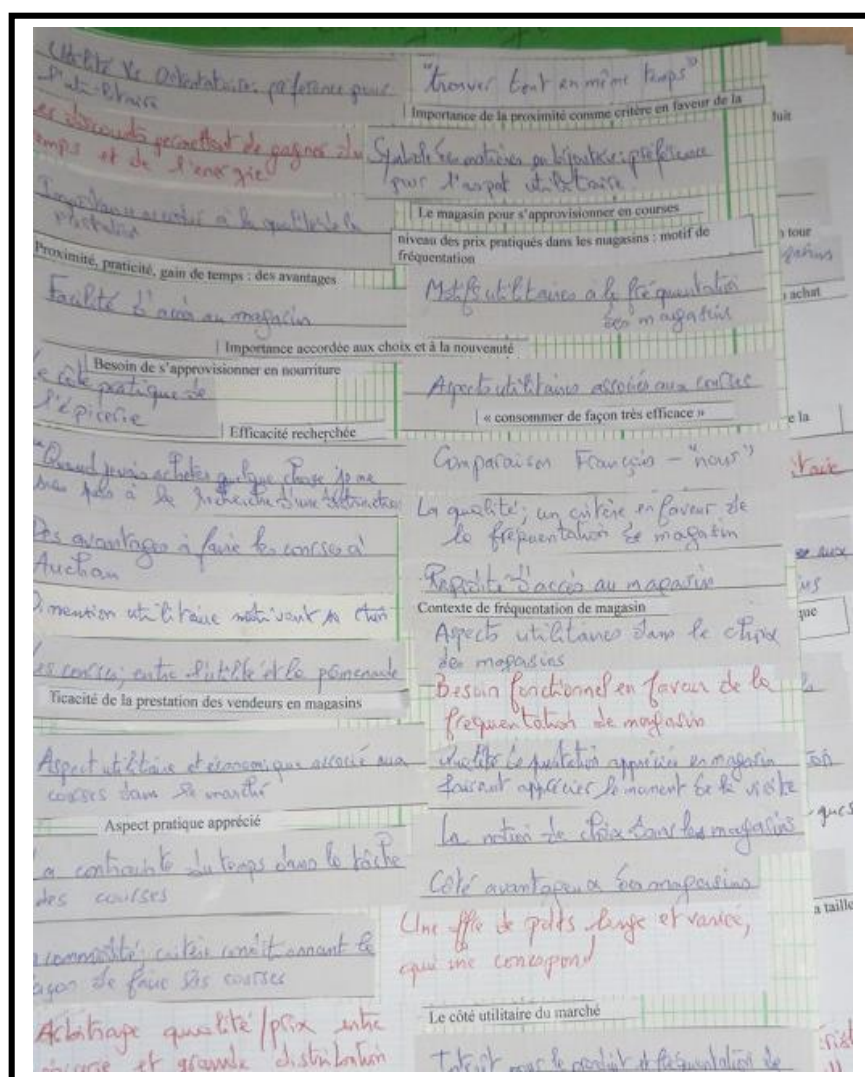 Utilité Vs Ostentatoire: préférence pour
l'utilitaire
Les discounts permettent de gagner du
temps et de l'énergie
Importance accordée à la qualité de la
prestation
Proximité, praticité, gain de temps : des avantages
Facilité d'accès au magasin
Importance accordée aux choix et à la nouveauté
Besoin de s'approvisionner en nourriture
Le côté pratique de
l'épicerie
Efficacité recherchée
"Quand je vais acheter quelque chose je ne
suis pas à la recherche d'une distraction
Des avantages à faire les courses à
Auchan
Dimention utilitaire motivant le choix
Les courses; entre l'utilité et la promenade
ficacité de la prestation des vendeurs en magasins
Aspect utilitaire et économique associé aux
courses dans le marché
Aspect pratique apprécié
La contrainte du temps dans la tâche
des courses
commodité; critère conditionnant la
façon de faire ses courses
Arbitrage qualité/prix entre
épicerie et grande distribution
"trouver tout en même temps"
Importance de la proximité comme critère en faveur de la
préférence
pour l'aspect utilitaire
Le magasin pour s'approvisionner en courses
niveau des prix pratiqués dans les magasins : motif de
fréquentation
Motifs utilitaires à la fréquentation
des magasins
Aspects utilitaires associés aux courses
« consommer de façon très efficace »
Comparaison Français - "nous"
La qualité; un critère en faveur de
la fréquentation de magasin
Rapidité d'accès au magasin
Contexte de fréquentation de magasin
Aspects utilitaires dans le choix
des magasins
Besoin fonctionnel en faveur de la
frequentation de magasin
Qualité de prestation appréciée en magasin
faisant apprécier le moment de la visite
La notion de choix dans les magasins
Côté avantageux des magasins
Une offre de pdts large et variée,
qui me correspond
Le côté utilitaire du marché
Intérêt pour le produit et fréquentation de
duit
tour
achat
e la
taire
aux
que
a taille